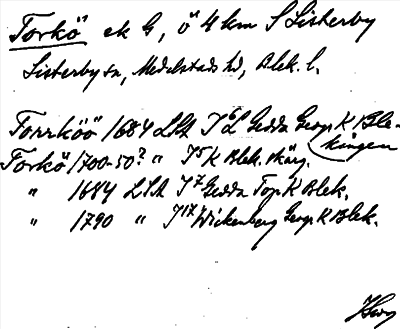 Torkö ek G, ö 4 km S Listerby
Listerby sn, Medelstads hd, Blek. l.
Torrköö 1684 LSA I 6 L Gedda Geogr K Ble-
kingen
Torkö 1700-50? " I 5 K Blek. skärg.
" 1684 LSA I 7 Gedda Top. K Blek.
" 1790 " I 17 Wickenberg Geogr. K Blek.